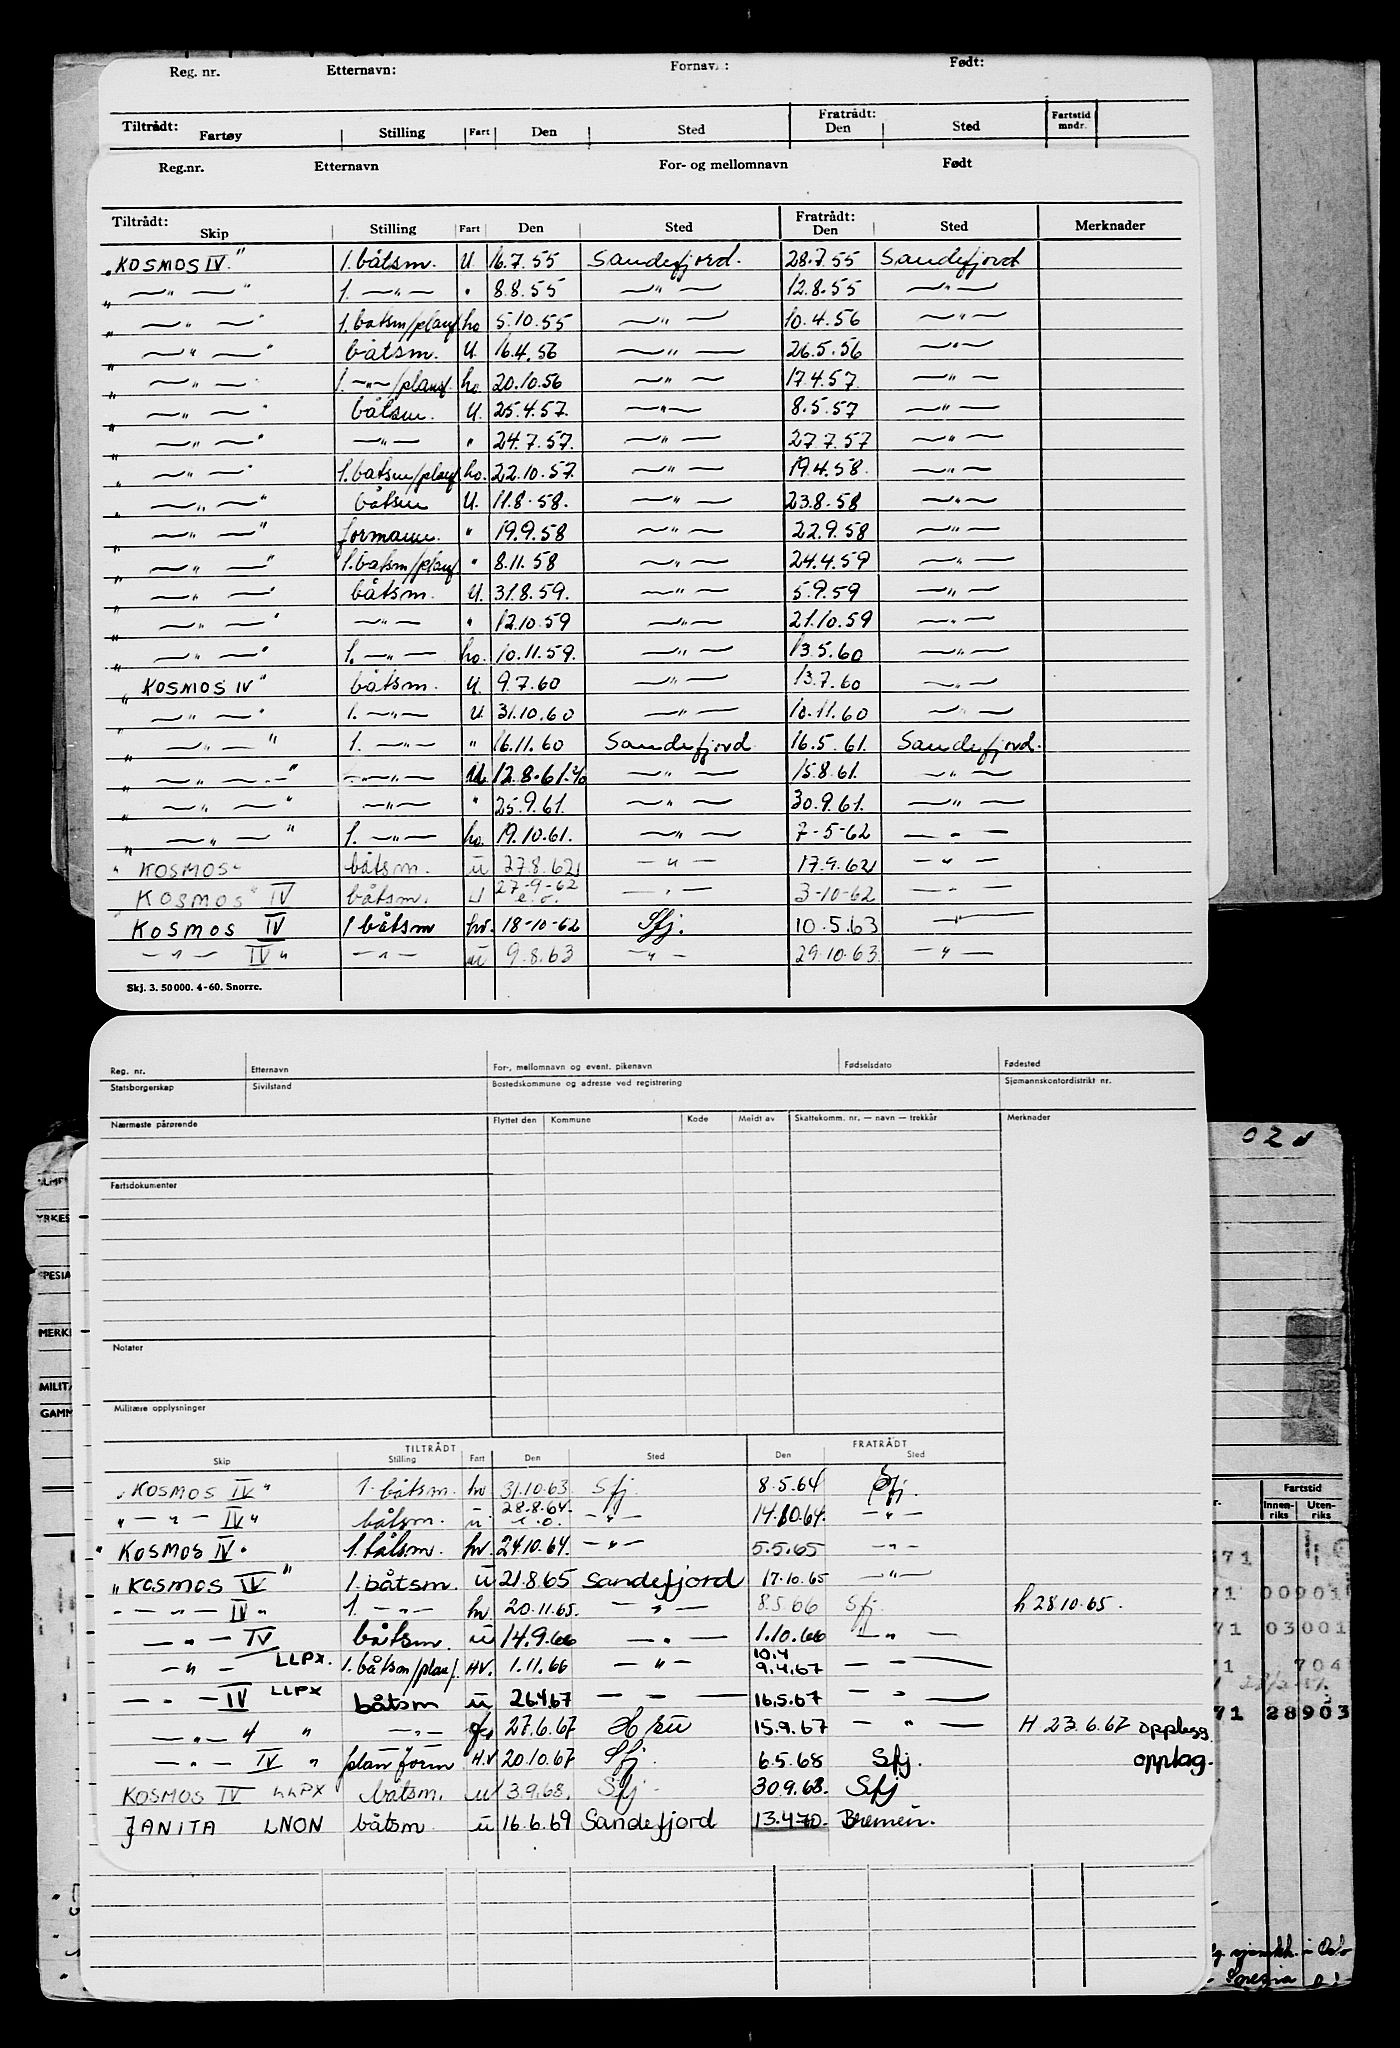 Reg. nr. Etternavn: Fornavn: Født:
Tiltrådt: Fratrådt: Fartstid
Fartøy Stilling Fart Den Sted Den Sted mndr.
Reg.nr. Etternavn For- og mellomnavn Født
Tiltrådt: Fratrådt:
Skip Stilling Fart Den Sted Den Sted Merknader
"KOSMOS IV." 1. båtsm. U. 16.7.55 Sandefjord. 28.7.55 Sandefjord
" —"— " 1. —"— " 8.8.55 —"— 12.8.55 —"—
" —"— " 1. båtsm/planf ho 5.10.55 —"— 10.4.56 —"—
" —"— " båtsm. U. 16.4.56 —"— 26.5.56 —"—
" —"— " 1. —"—/planf. ho. 20.10.56 —"— 17.4.57 —"—
" —"— " båtsm. U. 25.4.57. —"— 8.5.57 —"—
" —"— " —"— " 24.7.57. —"— 27.7.57 —"—
" —"— " 1. båtsm/planf ho. 22.10.57. —"— 19.4.58. —"—
" —"— " båtsm U. 11.8-58. —"— 23.8-58 —"—
" —"— " formann. " 19.9.58 —"— 22.9.58 —"—
" —"— " 1. båtsm/planf " 8.11.58 —"— 24.4.59 —"—
" —"— " båtsm. U. 31.8.59. —"— 5.9.59 —"—
" —"— " —"— " 12.10.59 —"— 21.10.59 —"—
" —"— " 1. —"— ho. 10.11.59. —"— 13.5.60 —"—
" KOSMOS IV" båtsm. U. 9.7.60 —"— 13.7.60 —"—
" —"— " 1. —"— U. 31.10.60 —"— 10.11.60 —"—
" —"— " 1. —"— " 16.11.60 Sandefjord 16.5.61. Sandefjord.
" —"— " —"— U 12.8.61. —"— 15.8.61. —"—
" —"— " —"— " 25.9.61. —"— 30.9.61. —"—
" —"— " 1. —"— ho. 19.10.61. —"— 7-5-62 —"—
" KOSMOS" båtsm. u 27.8.62 —"— 17.9.62 —"—
" KOSMOS" IV båtsm. u 27-9-62 e.o. —"— 3-10-62 —"—
KOSMOS IV 1 båtsm hv. 18-10-62 Sfj. 10.5.63 —"—
—"— IV" —"— u 9.8.63 —"— 29.10.63. —"—
Skj. 3. 50 000. 4-60. Snorre.
Reg. nr. Etternavn For-, mellomnavn og event. pikenavn Fødselsdato Fødested
Statsborgerskap Sivilstand Bostedskommune og adresse ved registrering Sjømannskontordistrikt nr.
Nærmeste pårørende Flyttet den Kommune Kode Meldt av Skattekomm. nr. — navn — trekkår Merknader
02
YRKES
Fartsdokumenter
SPESIA
MERK
Notater
MILITÆ
Militære opplysninger
GAMM
TILTRÅDT FRATRÅDT
Skip Stilling Fart Den Sted Den Sted
"KOSMOS IV" 1. båtsm. hv 31.10.63. Sfj. 8.5.64 Sfj.
" —"— IV" båtsm. u 28.8.64. e.o. —"— 14.10.64. —"—
"KOSMOS IV" 1. båtsm. hv. 24.10.64. —"— 5.5.65 —"—
"KOSMOS IV" 1. båtsm. u 21.8.65 Sandefjord 17.10.65 —"—
" —"— IV" 1. —"— hv 20.11.65. —"— 8.5.66 Sfj. h 28.10.65.
—"— IV båtsm. u 14.9.66 —"— 1.10.66 —"—
—"— LLPX. 1. båtsm/planf. HV. 1.11.66 —"— 10.4 9.4.67 —"—
—"— IV LLPX båtsm u 26.4.67 —"— 16.5.67 —"—
—"— " " —"— 27.6.67 15.9.67 —"— H 23.6.67 opplegg
—"— IV " plan form H.V 20.10.67 Sfj. 6.5.68 Sfj. opplag.
KOSMOS IV LLPX båtsm. u 3.9.68. Sfj. 30.9.68. Sfj
JANITA LNON båtsm. u 16.6.69 Sandefjord 13.4.70. Bremen.
Fartstid
Innenriks Utenriks
71
71 00901
71 03001
71 704
71 28903
sjømkk. i Oslo